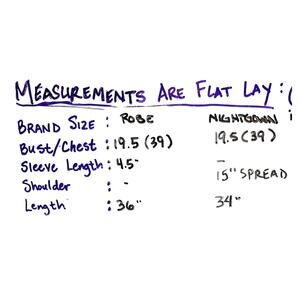 MEASUREMENTS ARE FLAT LAY : (
BRAND SIZE : ROBE NIGHTGOWN
BUST/CHEST : 19.5 (39) 19.5 (39)
SLEEVE LENGTH : 4.5" -
SHOULDER : - 15" SPREAD
LENGTH : 36" 34"